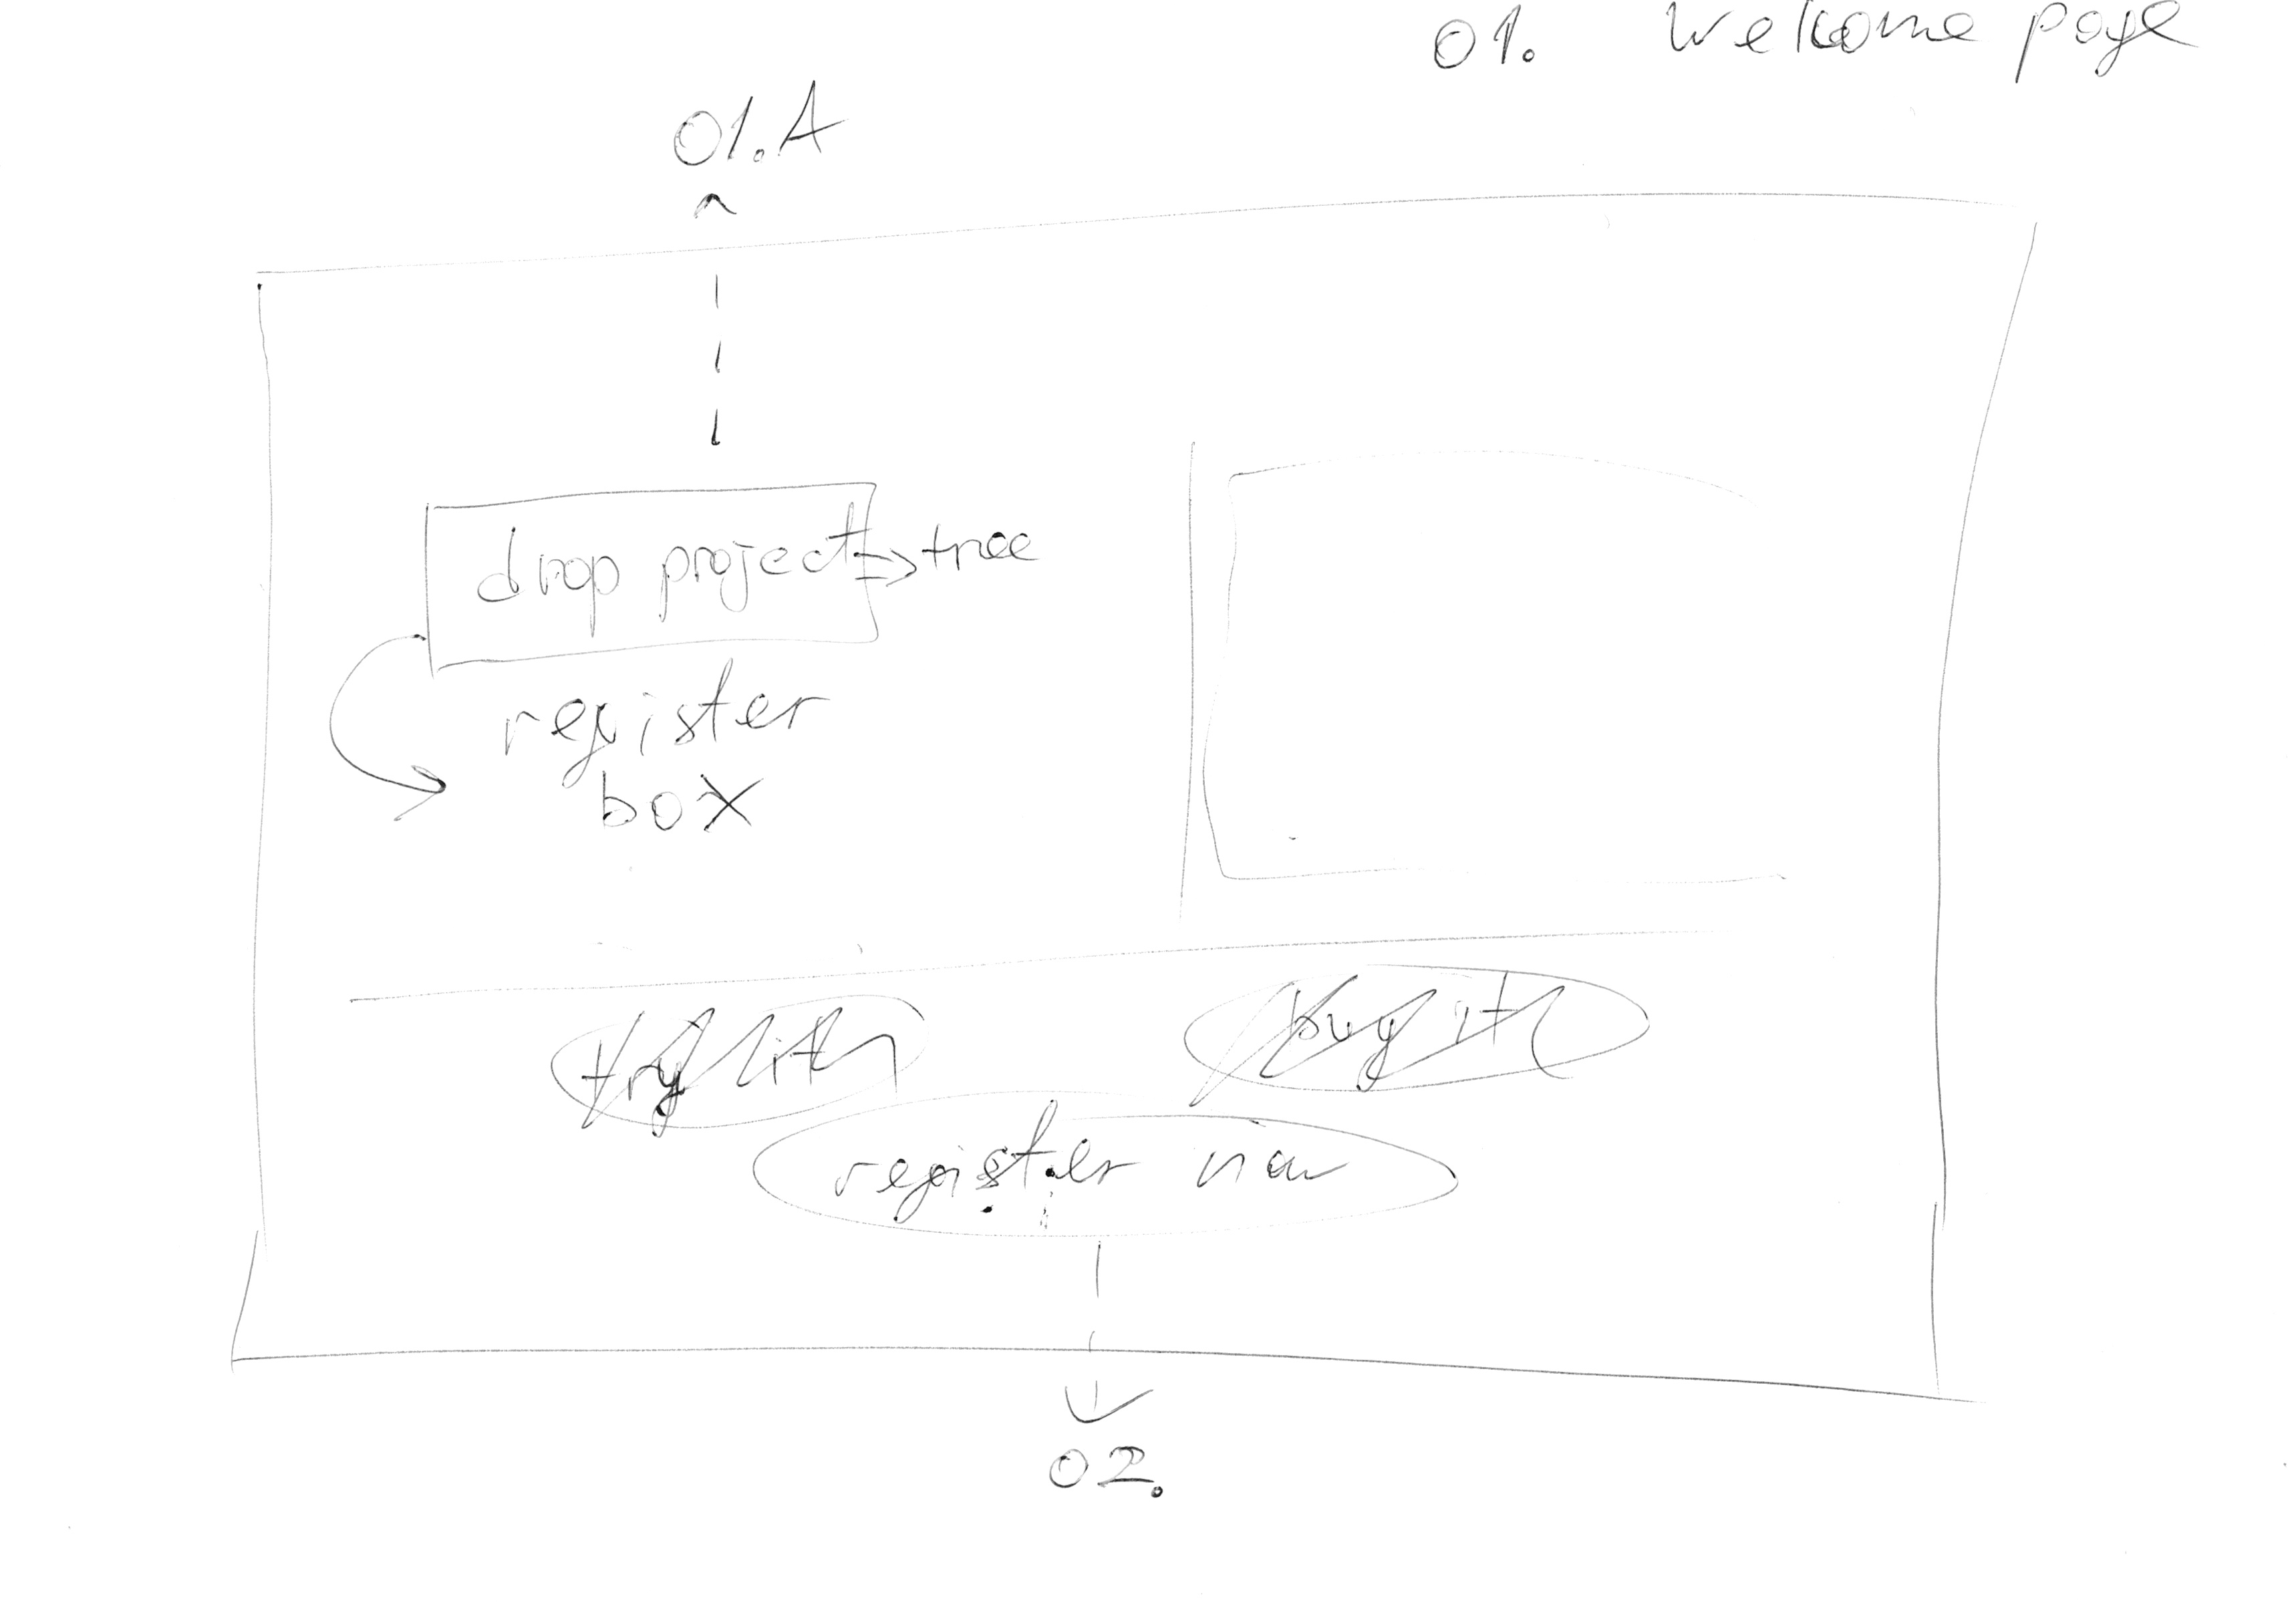 01. Welcome page
01.A
drop project => tree
register
box
try it
buy it
register now
02.